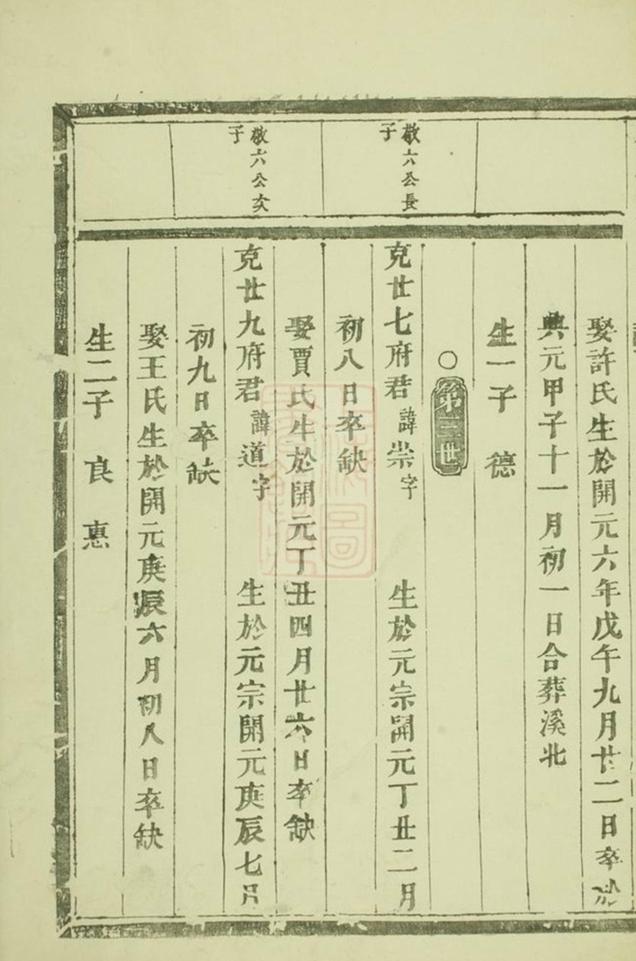 娶許氏生於開元六年戊午九月廿二日卒於
興元甲子十一月初一日合葬溪北
生一子 德
○第三世
敬六公長子
克世七府君諱崇字 生於元宗開元丁丑二月
初八日卒缺
娶賈氏生於開元丁丑四月廿六日卒缺
敬六公次子
克世九府君諱道字 生於元宗開元庚辰七月
初九日卒缺
娶王氏生於開元庚辰六月初八日卒缺
生二子 良 惠